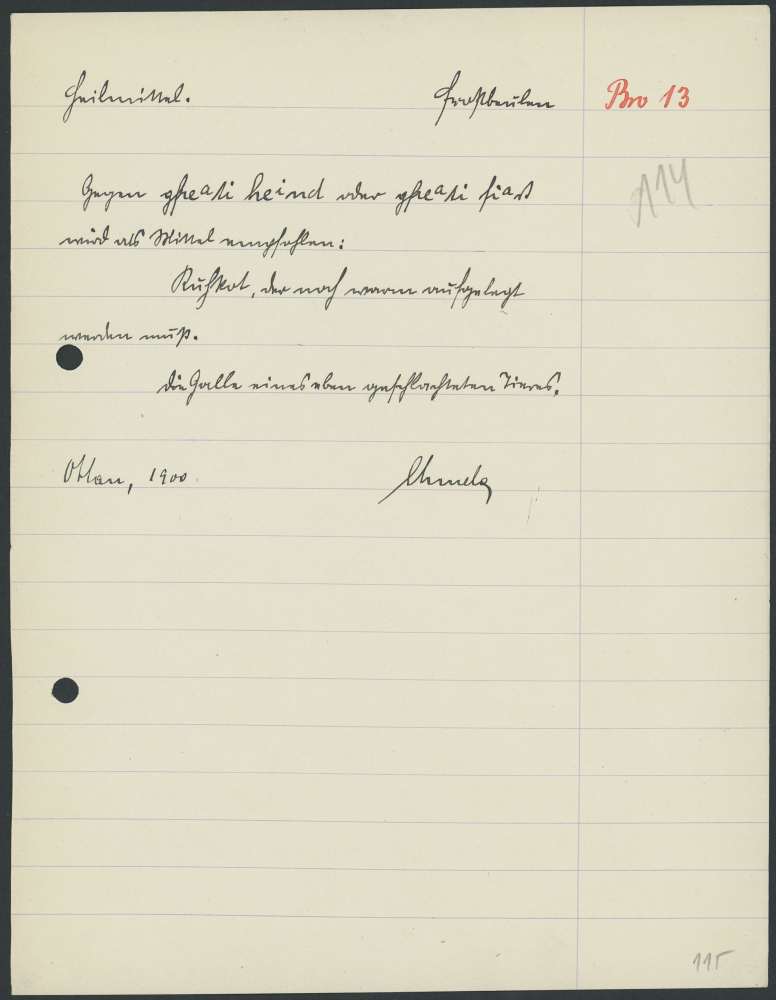 Heilmittel. Frostbeulen Bro 13
114
Gegen gfreati heind oder gfreati fiast
wird als Mittel empfohlen:
Kuhkot, der noch warm aufgelegt
werden muß.
Die Galle eines eben geschlachteten Tieres.
Ottau, 1900. Chmela
115